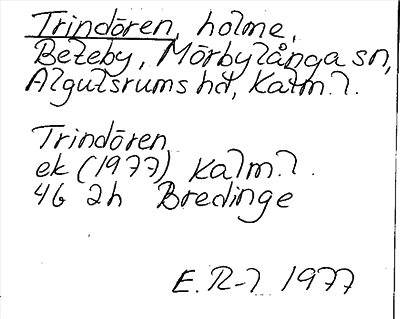 Trindören, holme,
Beteby, Mörbylånga sn,
Algutsrums hd, Kalm. l.
Trindören
ek (1977) Kalm. l.
4G 2h Bredinge
E. R-l 1977